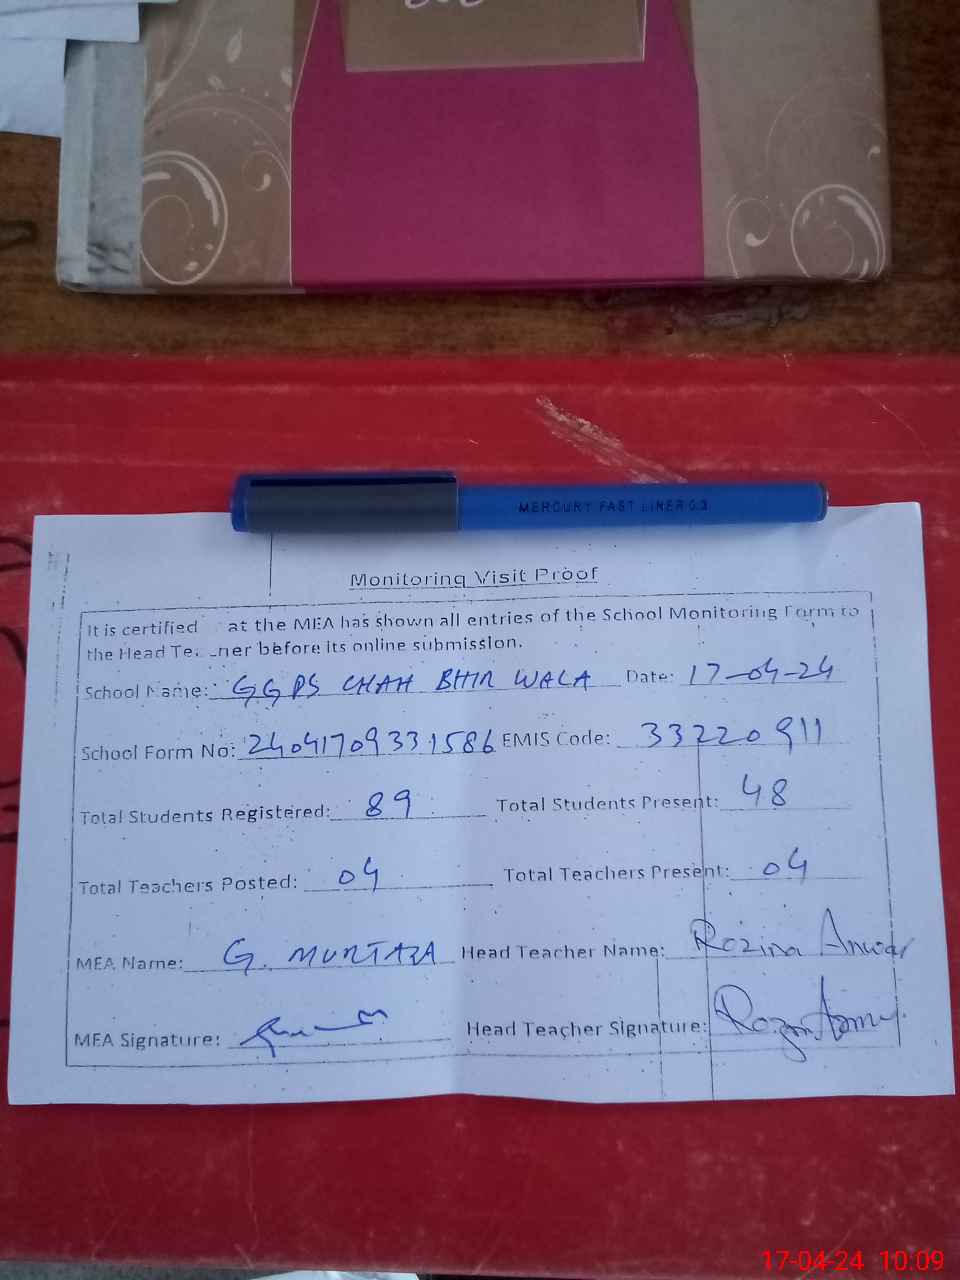 MERCURY FAST LINER 0.3
Monitoring Visit Proof
It is certified at the MEA has shown all entries of the School Monitoring Form to
the Head Te ner before its online submission.
School Name: GGPS CHAH BHIR WALA Date: 17-04-24
School Form No: 24041709331586 EMIS Code: 33220911
Total Students Registered: 89 Total Students Present: 48
Total Teachers Posted: 04 Total Teachers Present: 04
MEA Name: G. MURTAZA Head Teacher Name: Rozina Anwar
MEA Signature: Head Teacher Signature:
17-04-24 10:09